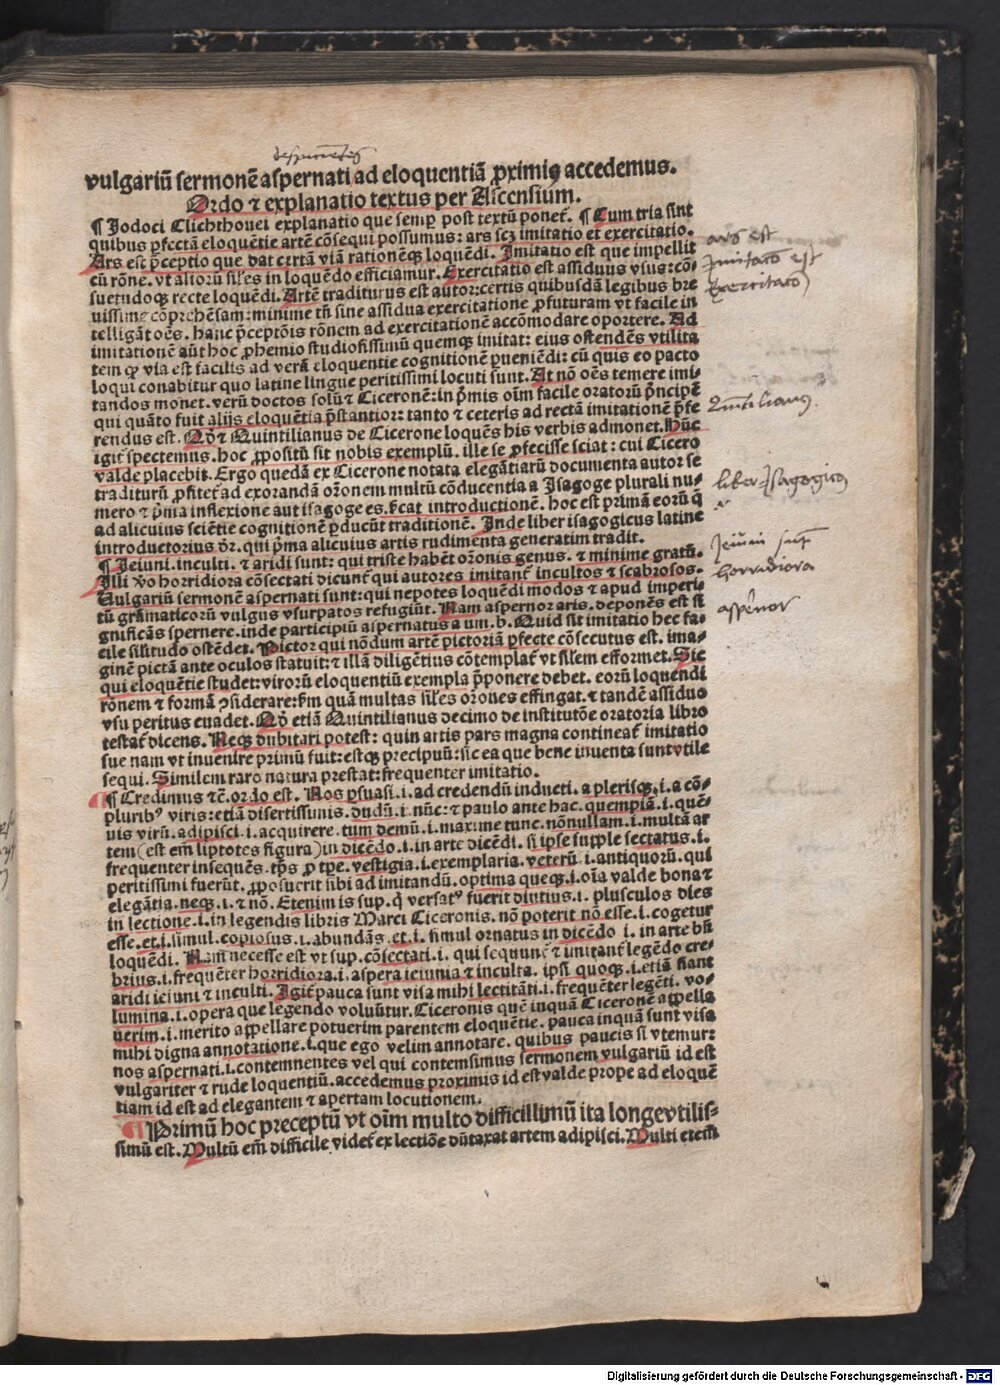 vulgariũ sermonẽ aspernati ad eloquentiã ꝓximiꝰ accedemus.
Ordo ⁊ explanatio textus per Ascensium.
¶ Jodoci Clichthouei explanatio que semꝑ post textũ ponet᷑. ¶ Cum tria sint
quibus ꝑfectã eloquẽtie artẽ cõsequi possumus: ars scꝫ imitatio et exercitatio.
Ars est p̃ceptio que dat certã viã rationẽqꝫ loquẽdi. Imitatio est que impellit
cũ rõne. vt aliorũ siles in loquẽdo efficiamur. Exercitatio est assiduus vsus: cõ⸗
suetudoqꝫ recte loquẽdi. Artẽ traditurus est autor: certis quibusdã legibus bre
uissime cõprehẽsam: minime tñ sine assidua exercitatione ꝓfuturam vt facile in
telligãt oẽs. hanc p̃ceptõis rõnem ad exercitationẽ accõmodare oportere. Ad
imitationẽ aũt hoc ꝓhemio studiosissimũ quemqꝫ imitat: eius ostendẽs vtilita
tem qꝫ via est facilis ad verã eloquentie cognitionẽ ꝑueniẽdi: cũ quis eo pacto
loqui conabitur quo latine lingue peritissimi locuti sunt. At nõ oẽs temere imi⸗
tandos monet. verũ doctos solũ ⁊ Ciceronẽ: in p̃mis oĩm facile oratorũ p̃ncipẽ
qui quãto fuit alijs eloquẽtia p̃stantior: tanto ⁊ ceteris ad rectã imitationẽ p̃fe
rendus est. Qð ⁊ Quintilianus de Cicerone loquẽs his verbis admonet. Hũc
igit᷑ spectemus. hoc ꝓpositũ sit nobis exemplũ. ille se ꝓfecisse sciat: cui Cicero
valde placebit. Ergo quedã ex Cicerone notata elegãtiarũ documenta autor se
traditurũ ꝓfitet᷑ ad exorandã or̃onem multũ cõducentia a Isagoge plurali nu⸗
mero ⁊ p̃ma inflexione aut isagoge es. s̃cat introductionẽ. hoc est primã eorũ q̃
ad alicuius sciẽtie cognitionẽ ꝑducũt traditionẽ. Inde liber isagogicus latine
introductorius dr̃. qui p̃ma alicuius artis rudimenta generatim tradit.
¶ Jeiuni. inculti. ⁊ aridi sunt: qui triste habẽt or̃onis genus. ⁊ minime gratũ.
Illi v̾o horridiora cõsectati dicunt᷑ qui autores imitant᷑ incultos ⁊ scabrosos.
Vulgariũ sermonẽ aspernati sunt: qui nepotes loquẽdi modos ⁊ apud imperi⸗
tũ grãmaticorũ vulgus vsurpatos refugiũt. Nam aspernor aris. deponẽs est si
gnificãs spernere. inde participiũ aspernatus a um. b. Quid sit imitatio hec fa⸗
cile silitudo ostẽdet. Pictor qui nõdum artẽ pictoriã ꝑfecte cõsecutus est. ima⸗
ginẽ pictã ante oculos statuit: ⁊ illã diligẽtius cõtemplat᷑ vt silem efformet. Sic
qui eloquẽtie studet: virorũ eloquentiũ exempla p̃ponere debet. eorũ loquendi
rõnem ⁊ formã ꝯsiderare: ꝑm quã multas siles or̃ones effingat. ⁊ tandẽ assiduo
vsu peritus euadet. Qð etiã Quintilianus decimo de institutõe oratoria libro
testat᷑ dicens. Neqꝫ dubitari potest: quin artis pars magna contineat᷑ imitatio
sue nam vt inuenire primũ fuit: estqꝫ precipuũ: sic ea que bene inuenta sunt vtile
sequi. Similem raro natura prestat: frequenter imitatio.
¶ Credimus ⁊c̃. ordo est. Nos ꝑsuasi .i. ad credendũ inducti. a plerisqꝫ .i. a cõ⸗
pluribꝰ viris: etiã disertissimis. dudũ .i. nũc: ⁊ paulo ante hac. quempiã .i. quẽ⸗
vis virũ. adipisci .i. acquirere. tum demũ .i. maxime tunc. nõnullam .i. multã ar
tem (est em̃ liptotes figura) in dicẽdo .i. in arte dicẽdi. si ipse supple sectatus .i.
frequenter insequẽs. tp̃s ꝓ tp̃e. vestigia .i. exemplaria. veterũ .i. antiquorũ. qui
peritissimi fuerũt. ꝓposuerit sibi ad imitandũ. optima queqꝫ .i. oĩa valde bona ⁊
elegãtia. neqꝫ .i. ⁊ nõ. Etenim is sup. q̃ versatꝰ fuerit diutius .i. plusculos dies
in lectione .i. in legendis libris Marci Ciceronis. nõ poterit nõ esse .i. cogetur
esse. et .i. simul. copiosus .i. abundãs. et .i. simul ornatus in dicẽdo .i. in arte bñ
loquẽdi. Nam necesse est vt sup. cõsectati .i. qui sequunt᷑ ⁊ imitant᷑ legẽdo cre⸗
brius .i. frequẽter horridiora .i. aspera ieiunia ⁊ inculta. ipsi quoqꝫ .i. etiã fiant
aridi ieiuni ⁊ inculti. Igit᷑ pauca sunt visa mihi lectitãti .i. frequẽter legẽti. vo⸗
lumina .i. opera que legendo voluũtur. Ciceronis quẽ inquã Ciceronẽ appella
uerim .i. merito appellare potuerim parentem eloquẽtie. pauca inquã sunt visa
mihi digna annotatione .i. que ego velim annotare. quibus paucis si vtemur:
nos aspernati .i. contemnentes vel qui contemsimus sermonem vulgariũ id est
vulgariter ⁊ rude loquentiũ. accedemus proximis id est valde prope ad eloquẽ
tiam id est ad elegantem ⁊ apertam locutionem.
¶ Primũ hoc preceptũ vt oĩm multo difficillimũ ita longe vtilis⸗
simũ est. Multũ em̃ difficile videt᷑ ex lectiõe dũtaxat artem adipisci. Multi etem̃
ars est
Imitatõ est
Exercitatõ
Quintilianus.
liber Isagogicus
Jeiuni sunt
horridiora
aspernor